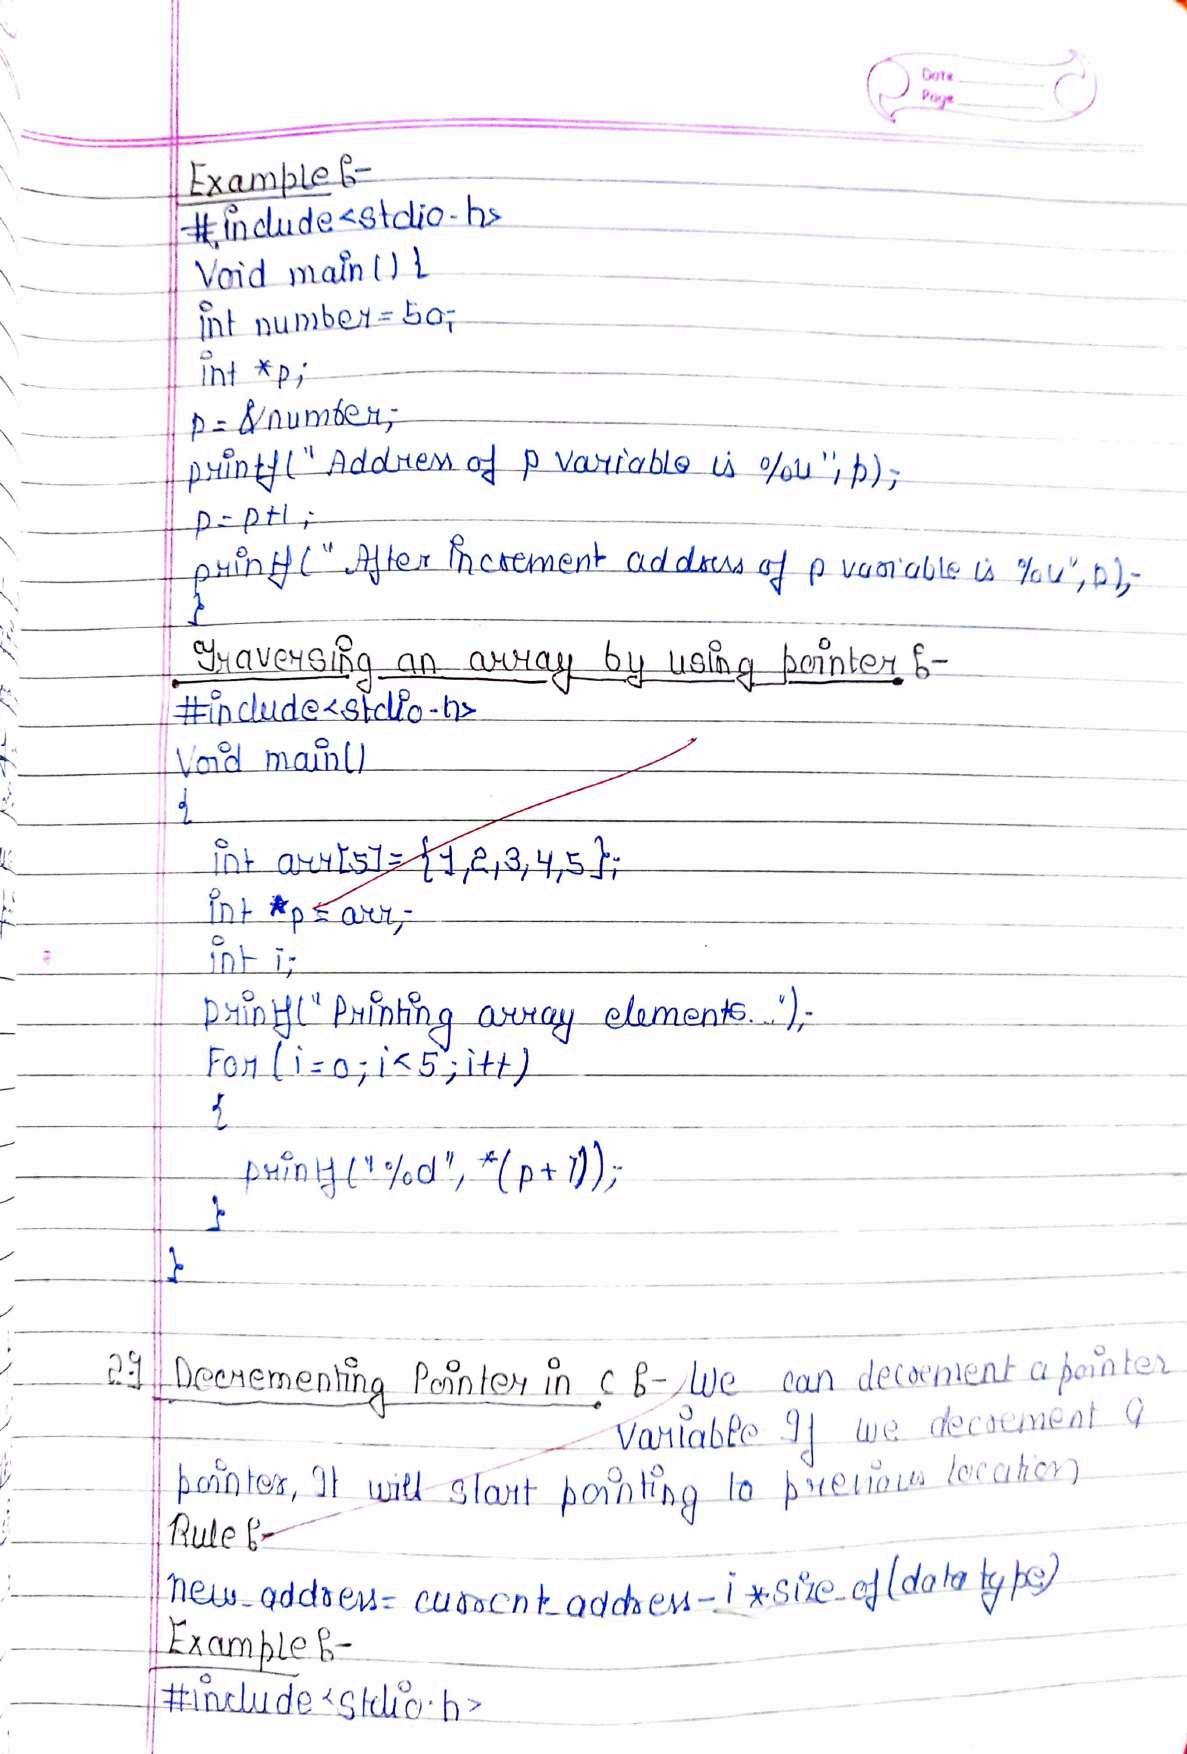 Date
Page
Example :-
#include<stdio.h>
Void main() {
int number = 50;
int *p;
p = &number;
printf(" Address of p variable is %u", p);
p = p+1;
printf(" After increment address of p variable is %u", p);
}
Traversing an array by using pointer :-
#include<stdio.h>
Void main()
{
int arr[5] = {1,2,3,4,5};
int *p = arr;
int i;
printf(" Printing array elements...");
For (i=0; i<5; i++)
{
printf("%d", *(p+i));
}
}
2) Decrementing Pointer in C :- We can decrement a pointer
variable If we decrement a
pointer, It will start pointing to previous location
Rule :-
new_address= current_address - i * size_of(data type)
Example :-
#include<stdio.h>